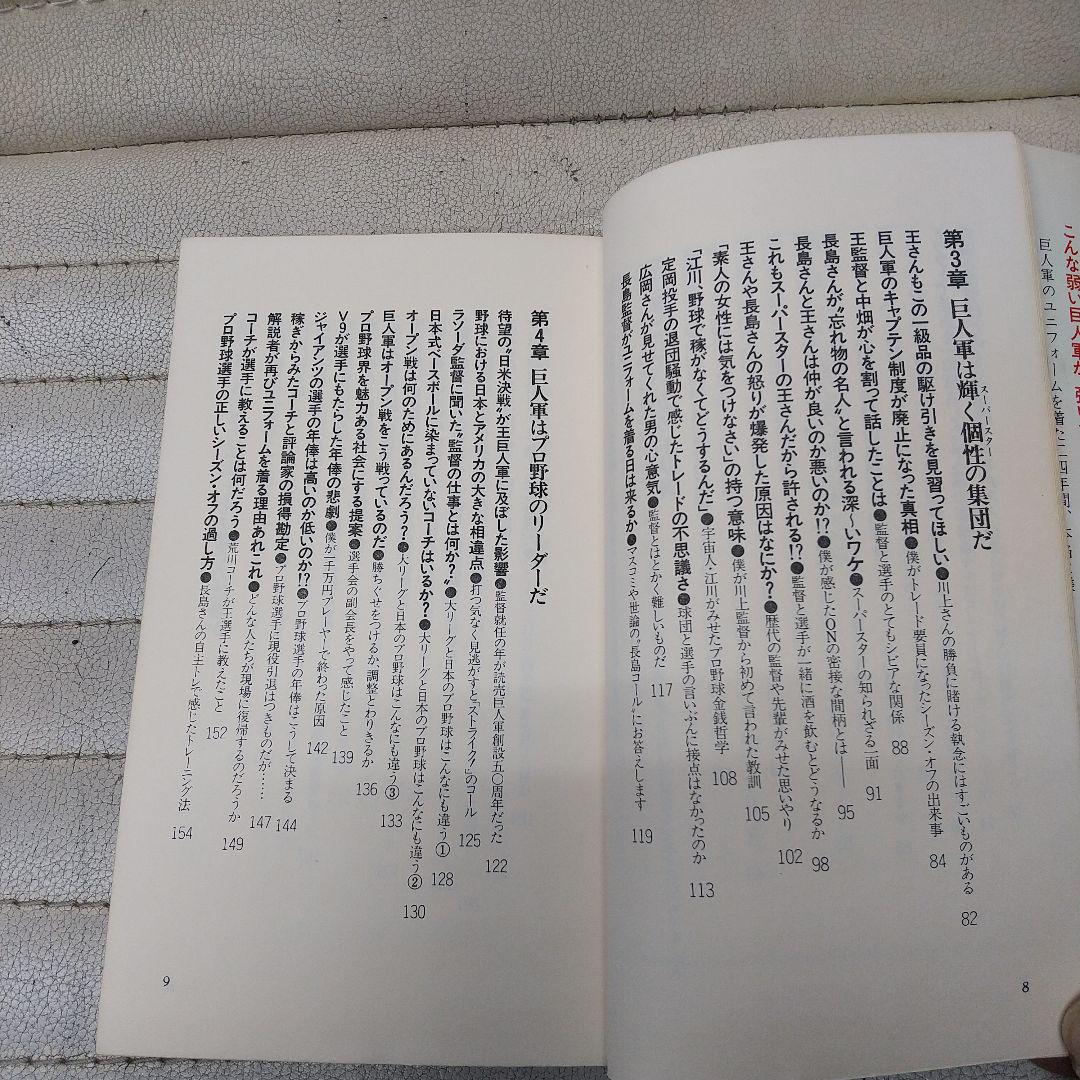 こんな弱い巨人軍が
巨人軍のユニフォームを着た二四年間
第3章 巨人軍は輝く個性の集団だ
スーパースター
王さんもこの一級品の駆け引きを見習ってほしい●川上さんの勝負に賭ける執念にはすごいものがある 82
巨人軍のキャプテン制度が廃止になった真相●僕がトレード要員になったシーズン・オフの出来事 84
王監督と中畑が心を割って話したことは●監督と選手のとてもシビアな関係 88
長島さんが〝忘れ物の名人〟と言われる深〜いワケ●スーパースターの知られざる一面 91
長島さんと王さんは仲が良いのか悪いのか!?●僕が感じたONの密接な間柄とは―― 95
これもスーパースターの王さんだから許される!?●監督と選手が一緒に酒を飲むとどうなるか 98
王さんや長島さんの怒りが爆発した原因はなにか?●歴代の監督や先輩がみせた思いやり 102
「素人の女性には気をつけなさい」の持つ意味●僕が川上監督から初めて言われた教訓 105
「江川、野球で稼がなくてどうするんだ」●宇宙人・江川がみせたプロ野球金銭哲学 108
定岡投手の退団騒動で感じたトレードの不思議さ●球団と選手の言いぶんに接点はなかったのか 113
広岡さんが見せてくれた男の心意気●監督とはとかく難しいものだ 117
長島監督がユニフォームを着る日は来るか●マスコミや世論の〝長島コール〟にお答えします 119
8
第4章 巨人軍はプロ野球のリーダーだ
待望の〝日米決戦〟が王巨人軍に及ぼした影響●監督就任の年が読売巨人軍創設五〇周年だった 122
野球における日本とアメリカの大きな相違点●打つ気なく見逃がすと「ストライク!」のコール 125
ラソーダ監督に聞いた〝監督の仕事とは何か?〟●大リーグと日本のプロ野球はこんなにも違う① 128
日本式ベースボールに染まっていないコーチはいるか?●大リーグと日本のプロ野球はこんなにも違う② 130
オープン戦は何のためにあるんだろう?●大リーグと日本のプロ野球はこんなにも違う③ 133
巨人軍はオープン戦をこう戦っているのだ●勝ちぐせをつけるか、調整とわりきるか 136
プロ野球界を魅力ある社会にする提案●選手会の副会長をやって感じたこと 139
V9が選手にもたらした年俸の悲劇●僕が一千万円プレーヤーで終わった原因 142
ジャイアンツの選手の年俸は高いのか低いのか!?●プロ野球選手の年俸はこうして決まる 144
稼ぎからみたコーチと評論家の損得勘定●プロ野球選手に現役引退はつきものだが…… 147
解説者が再びユニフォームを着る理由あれこれ●どんな人たちが現場に復帰するのだろうか 149
コーチが選手に教えることは何だろう●荒川コーチが王選手に教えたこと 152
プロ野球選手の正しいシーズン・オフの過し方●長島さんの自主トレで感じたトレーニング法 154
9